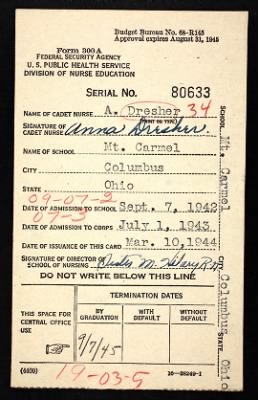 Budget Bureau No. 68-R145
Approval expires August 31, 1945
Form 300A
FEDERAL SECURITY AGENCY
U. S. PUBLIC HEALTH SERVICE
DIVISION OF NURSE EDUCATION
SERIAL NO. 80633
NAME OF CADET NURSE A. Dresher 34
(PRINT OR TYPE)
SIGNATURE OF CADET NURSE Anna Dresher.
NAME OF SCHOOL Mt. Carmel
CITY Columbus
STATE Ohio
09-07-2
DATE OF ADMISSION TO SCHOOL Sept. 7, 1942
07-3
DATE OF ADMISSION TO CORPS July 1, 1943
DATE OF ISSUANCE OF THIS CARD Mar. 10, 1944
SIGNATURE OF DIRECTOR SCHOOL OF NURSING M. R.N.
DO NOT WRITE BELOW THIS LINE
THIS SPACE FOR CENTRAL OFFICE USE
TERMINATION DATES
BY GRADUATION
WITH DEFAULT
WITHOUT DEFAULT
9/7/45
(4439)
19-03-5
SCHOOL Mt. Carmel
CITY Columbus
STATE Ohio